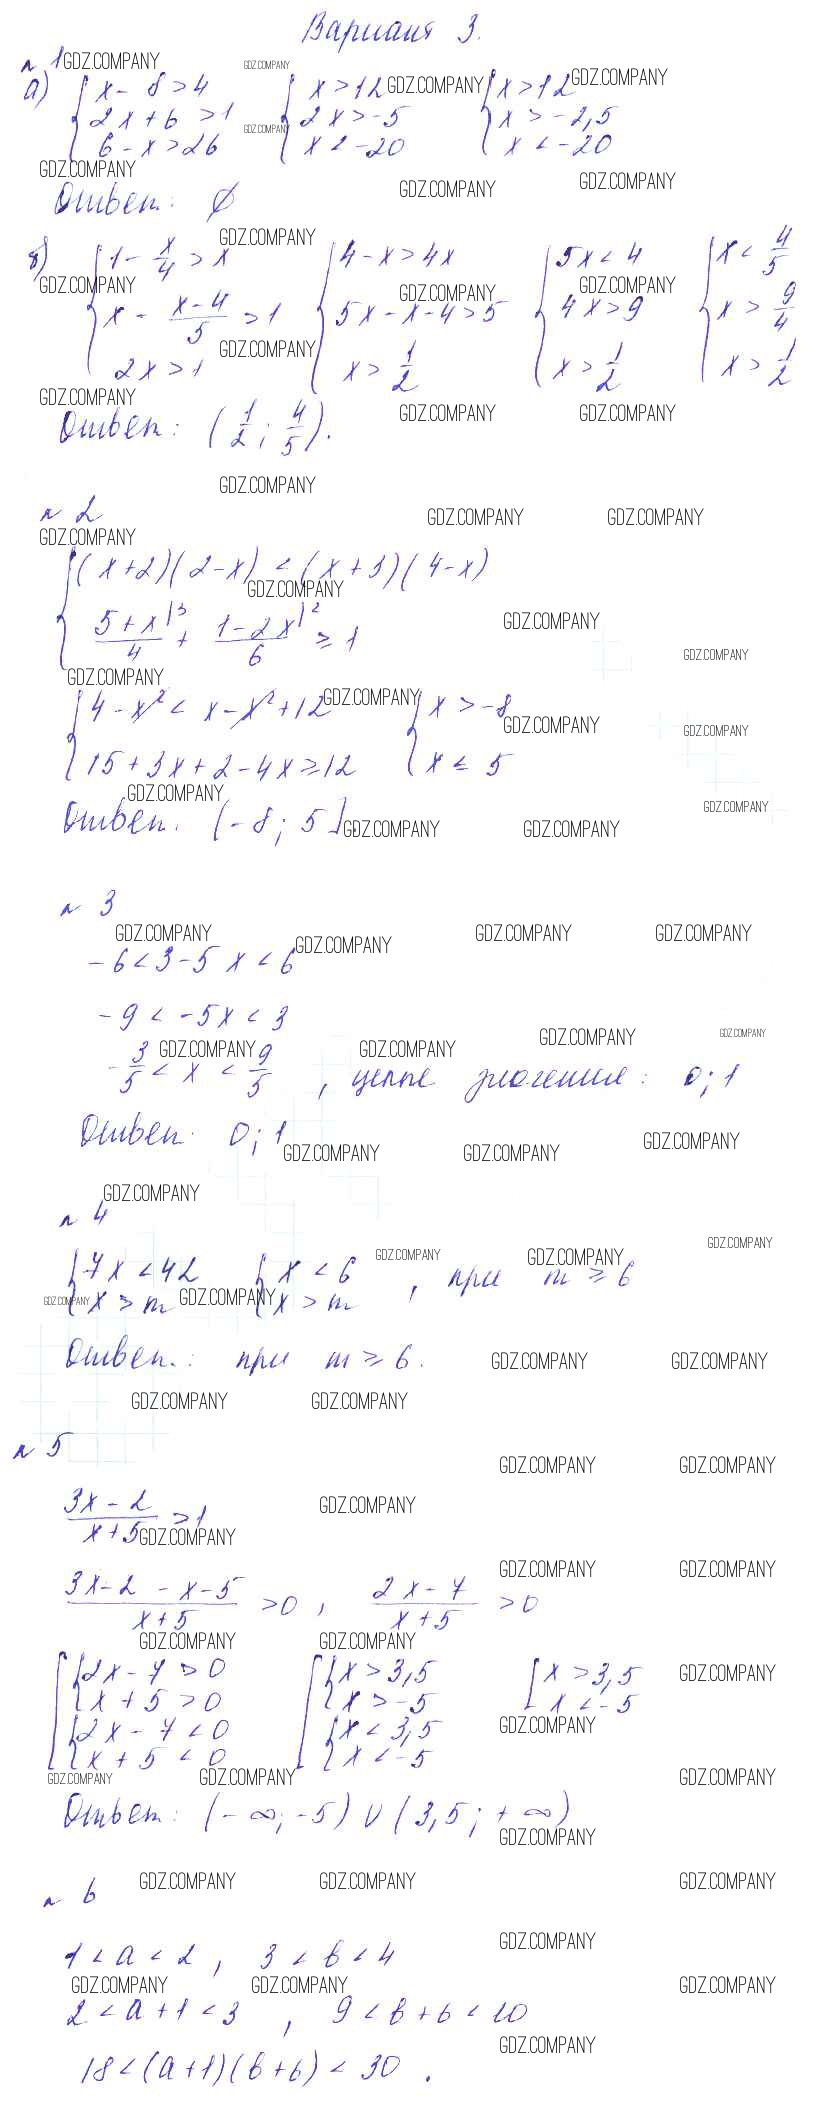 Вариант 3.
№ 1
а) { x - 8 > 4 { x > 12 { x > 12
2x + 6 > 1 2x > -5 x > -2,5
6 - x > 26 x < -20 x < -20
Ответ: ∅
б) { 1 - x/4 > x { 4 - x > 4x { 5x < 4 { x < 4/5
x - (x-4)/5 > 1 5x - x - 4 > 5 4x > 9 x > 9/4
2x > 1 x > 1/2 x > 1/2 x > 1/2
Ответ: (1/2; 4/5).
№ 2
{ (x+2)(2-x) < (x+3)(4-x)
(5+x)/4 |3 + (1-2x)/6 |2 ≥ 1
{ 4 - x² < x - x² + 12 { x > -8
15 + 3x + 2 - 4x ≥ 12 x ≤ 5
Ответ: (-8; 5].
№ 3
-6 < 3 - 5x < 6
-9 < -5x < 3
-3/5 < x < 9/5 , целые значения: 0; 1
Ответ: 0; 1
№ 4
{ 7x < 42 { x < 6 , при m ≥ 6
x > m x > m
Ответ: при m ≥ 6.
№ 5
(3x - 2)/(x + 5) > 1
(3x - 2 - x - 5)/(x + 5) > 0 , (2x - 7)/(x + 5) > 0
[ { 2x - 7 > 0 [ { x > 3,5 [ x > 3,5
x + 5 > 0 x > -5 x < -5
{ 2x - 7 < 0 { x < 3,5
x + 5 < 0 x < -5
Ответ: (-∞; -5) ∪ (3,5; +∞)
№ 6
1 < a < 2 , 3 < b < 4
2 < a + 1 < 3 , 9 < b + 6 < 10
18 < (a+1)(b+6) < 30 .
GDZ.COMPANY